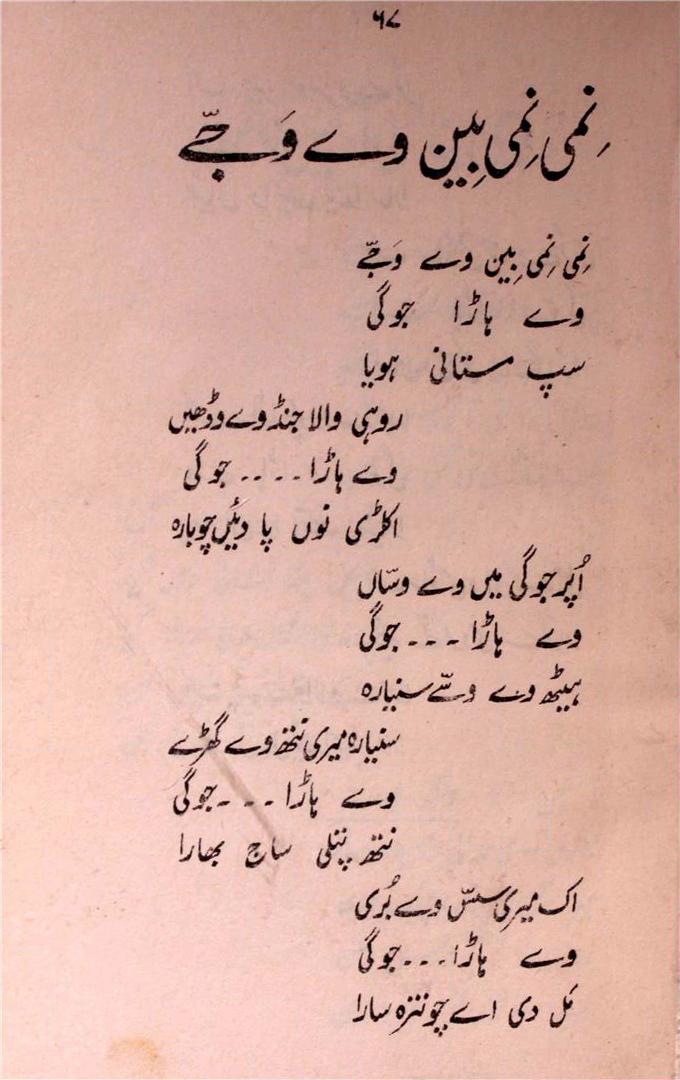 ۶۷
نِمی نِمی بِین وے وَجّے
نِمی نِمی بِین وے وَجّے
وے ہاڑا جوگی
سپ مستانی ہویا
روہی والا جنڈ وے وڈھیں
وے ہاڑا .... جوگی
اکلڑی نوں پا دیئیں چوبارہ
اُپر جوگی میں وے وسّاں
وے ہاڑا ... جوگی
ہیٹھ وے وسّے سنیارہ
سنیارہ میری نتھ وے گھڑے
وے ہاڑا ... جوگی
نتھ پتلی ساج بھارا
اک میری سسّ وے بُری
وے ہاڑا ... جوگی
مَل دی اے چونترہ سارا